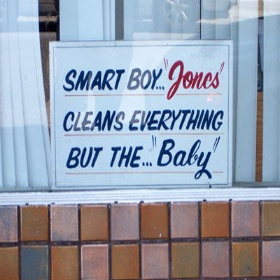 SMART BOY... "Jones"
CLEANS EVERYTHING
BUT THE... "Baby"